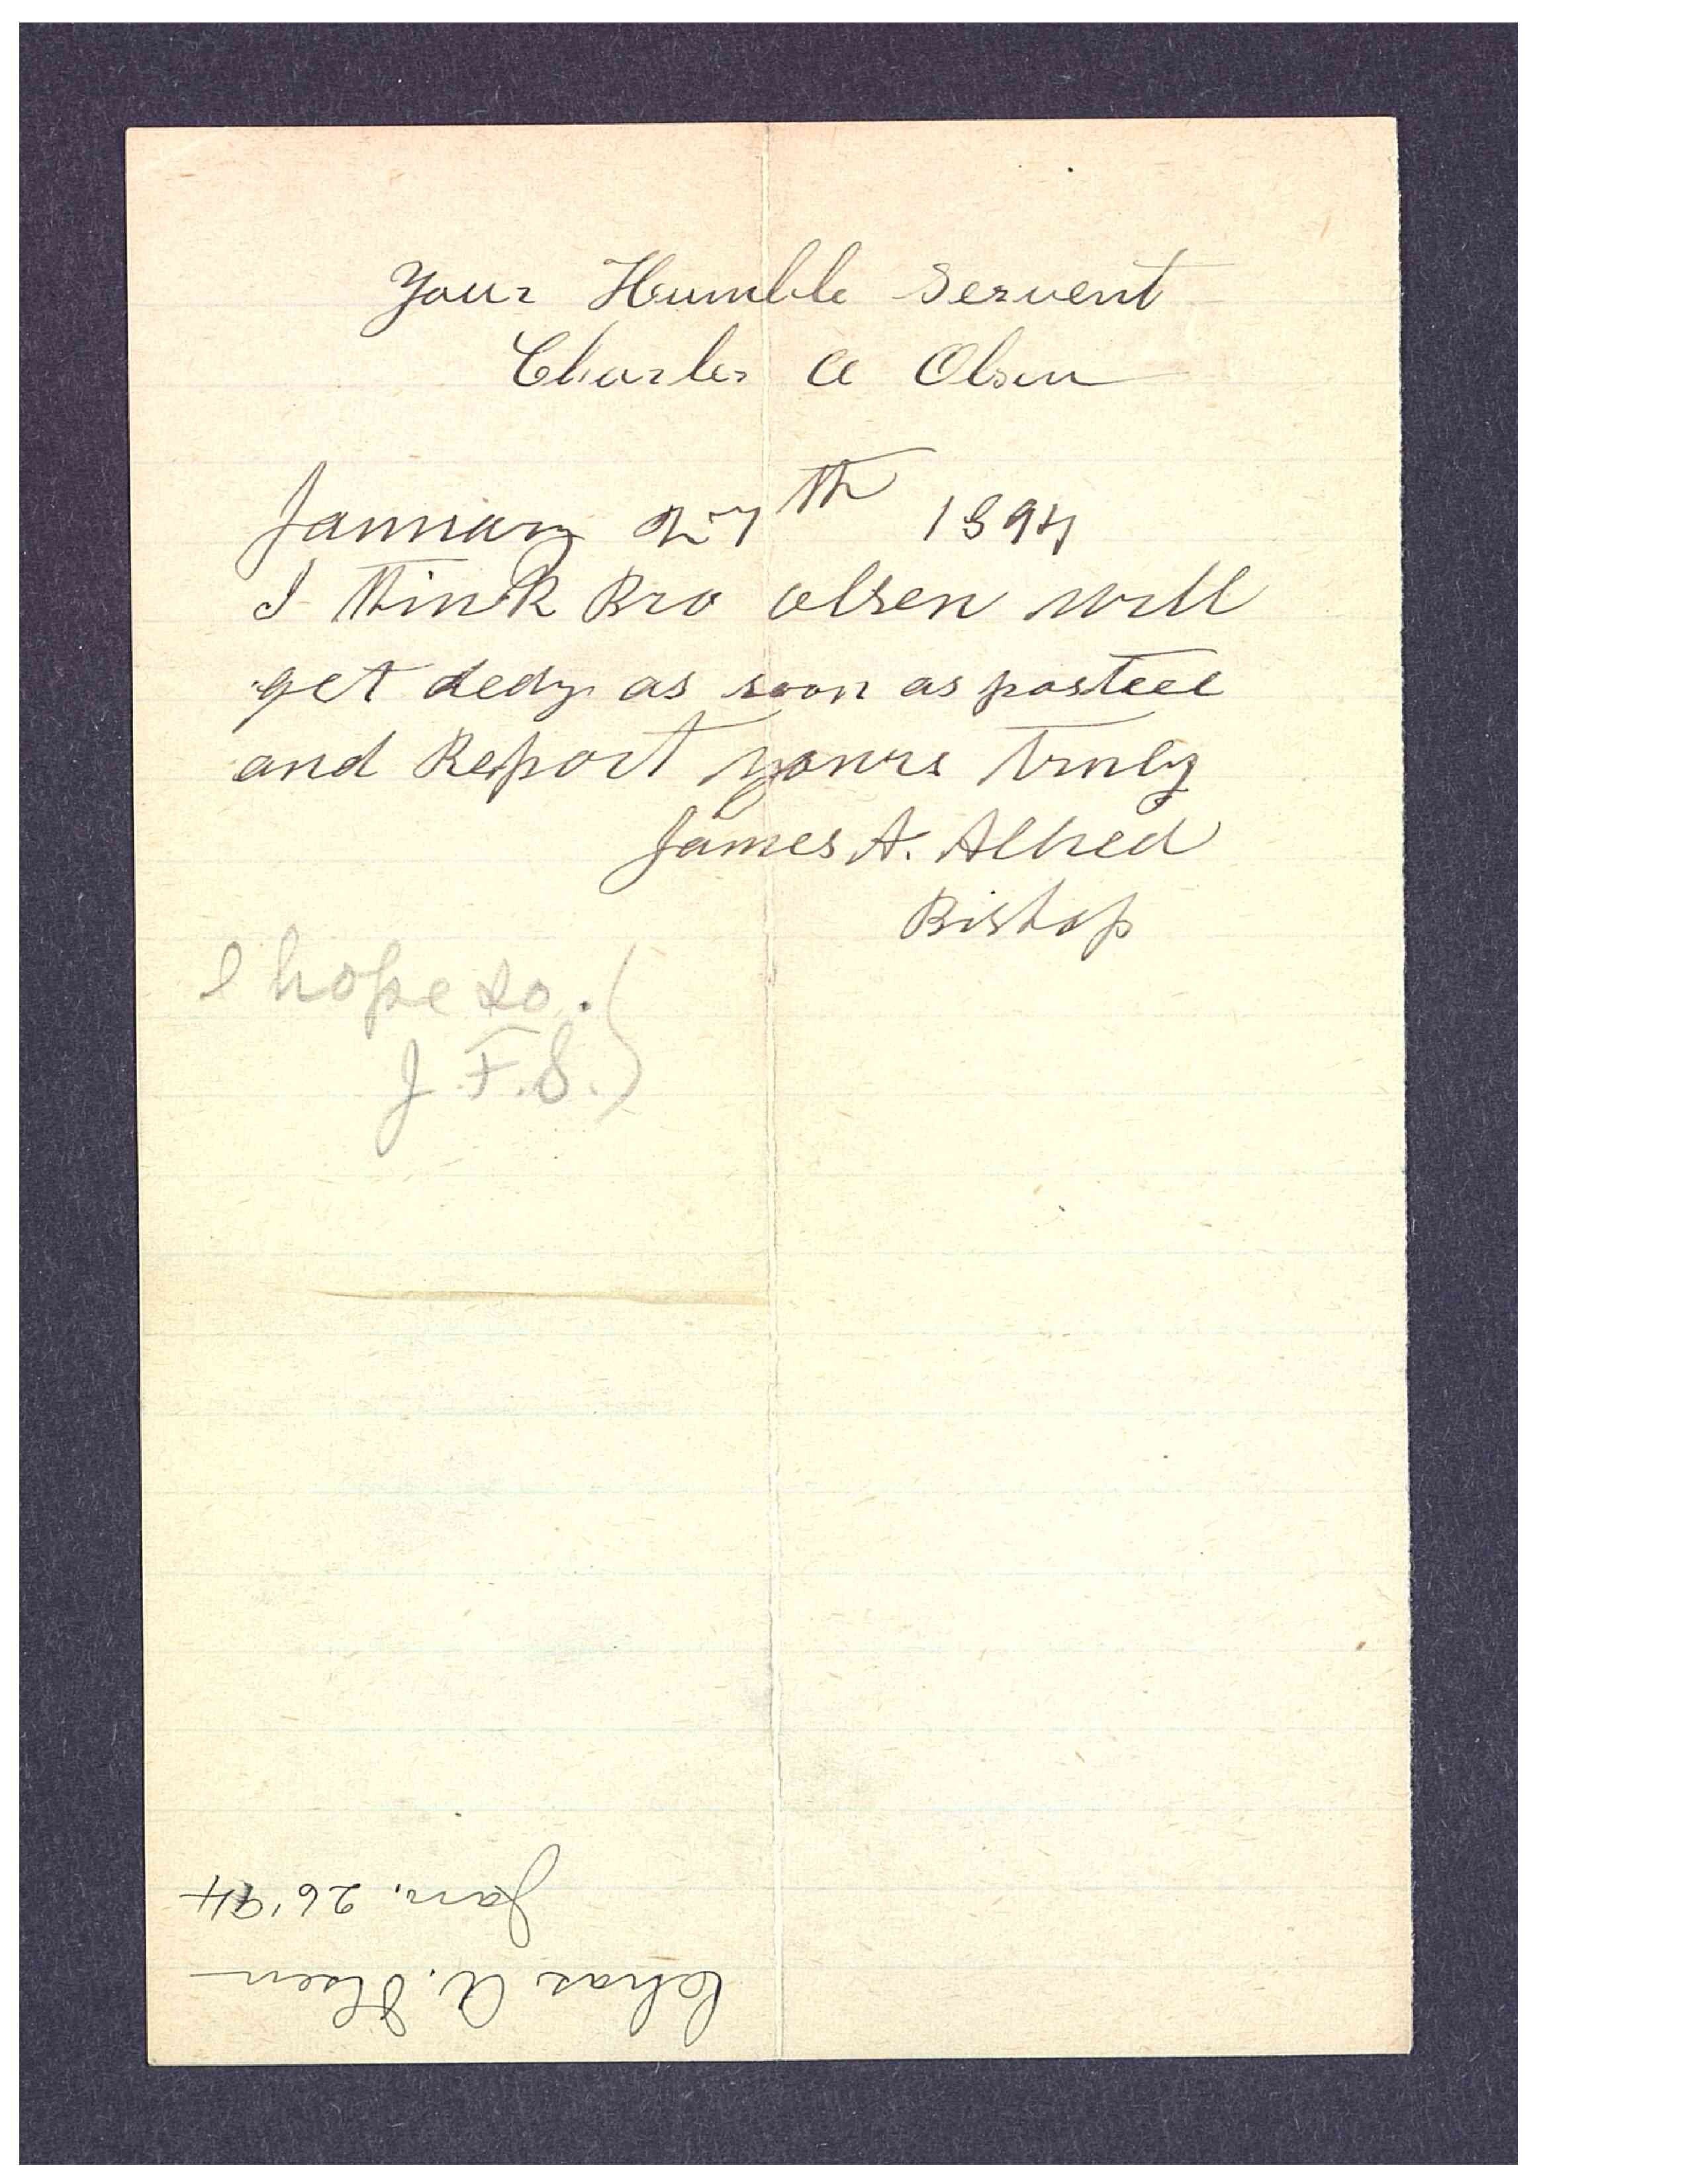 Your Humble Servent
Charles A Olsen
January 27th 1894
I think Bro olsen will
get as soon as
and Report yours truly
James A. Allred
Bishop
I hope so.
J. F. S.
Chas A. Olsen
Jan. 26 '94